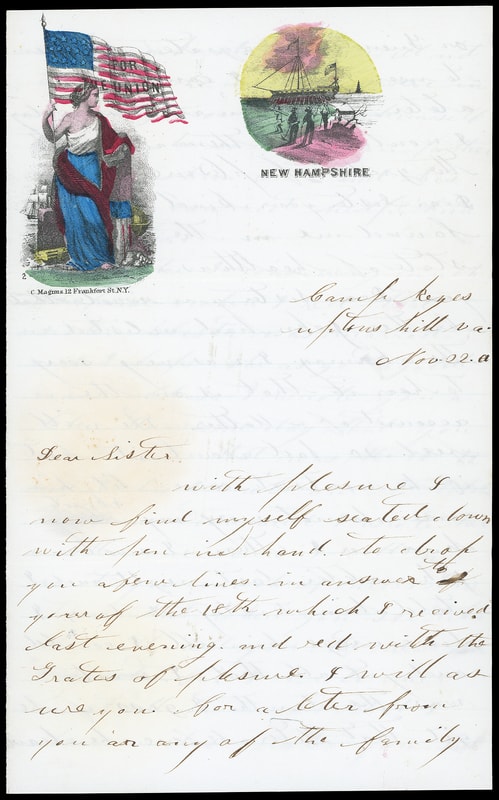 FOR
THE UNION
NEW HAMPSHIRE
2
C. Magnus 12 Frankfort St. N.Y.
Camp Keyes
uptons hill va.
Nov 22.
Dear Sister
with plesure I
now find myself seated down
with pen in hand. to drop
you a few lines. in answer to
your of the 18th which I recived
last evening. and red with the
Grates of plesure. I will as
ure you. for a leter from
you ar any of the family